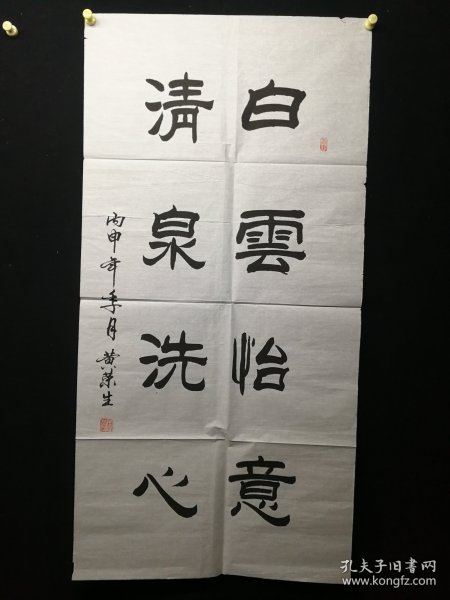 白雲怡意
清泉洗心
丙申年季月黄荣生
孔夫子旧书网
www.kongfz.com